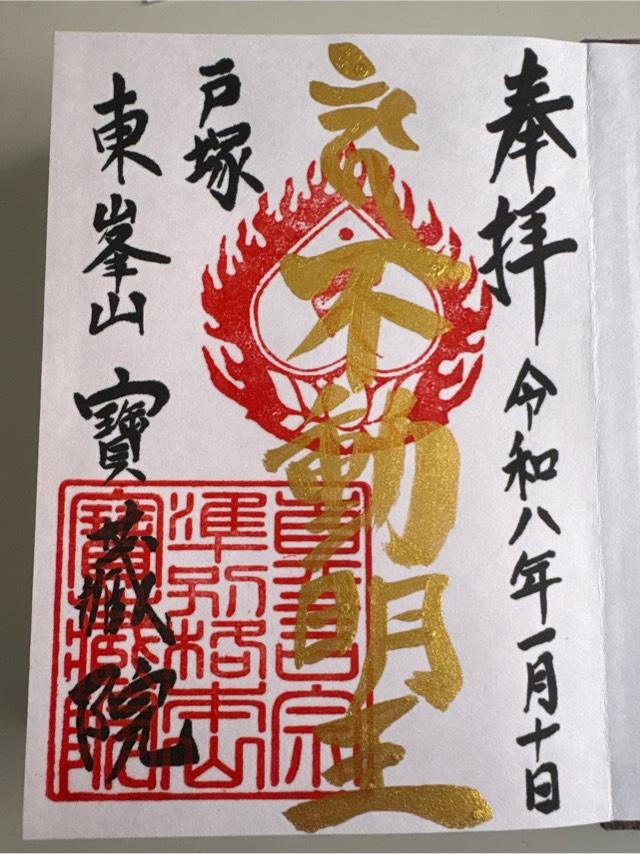 奉拝
令和八年一月十日
不動明王
戸塚
東峯山 寳蔵院
真言宗
準別格本山
寳蔵院